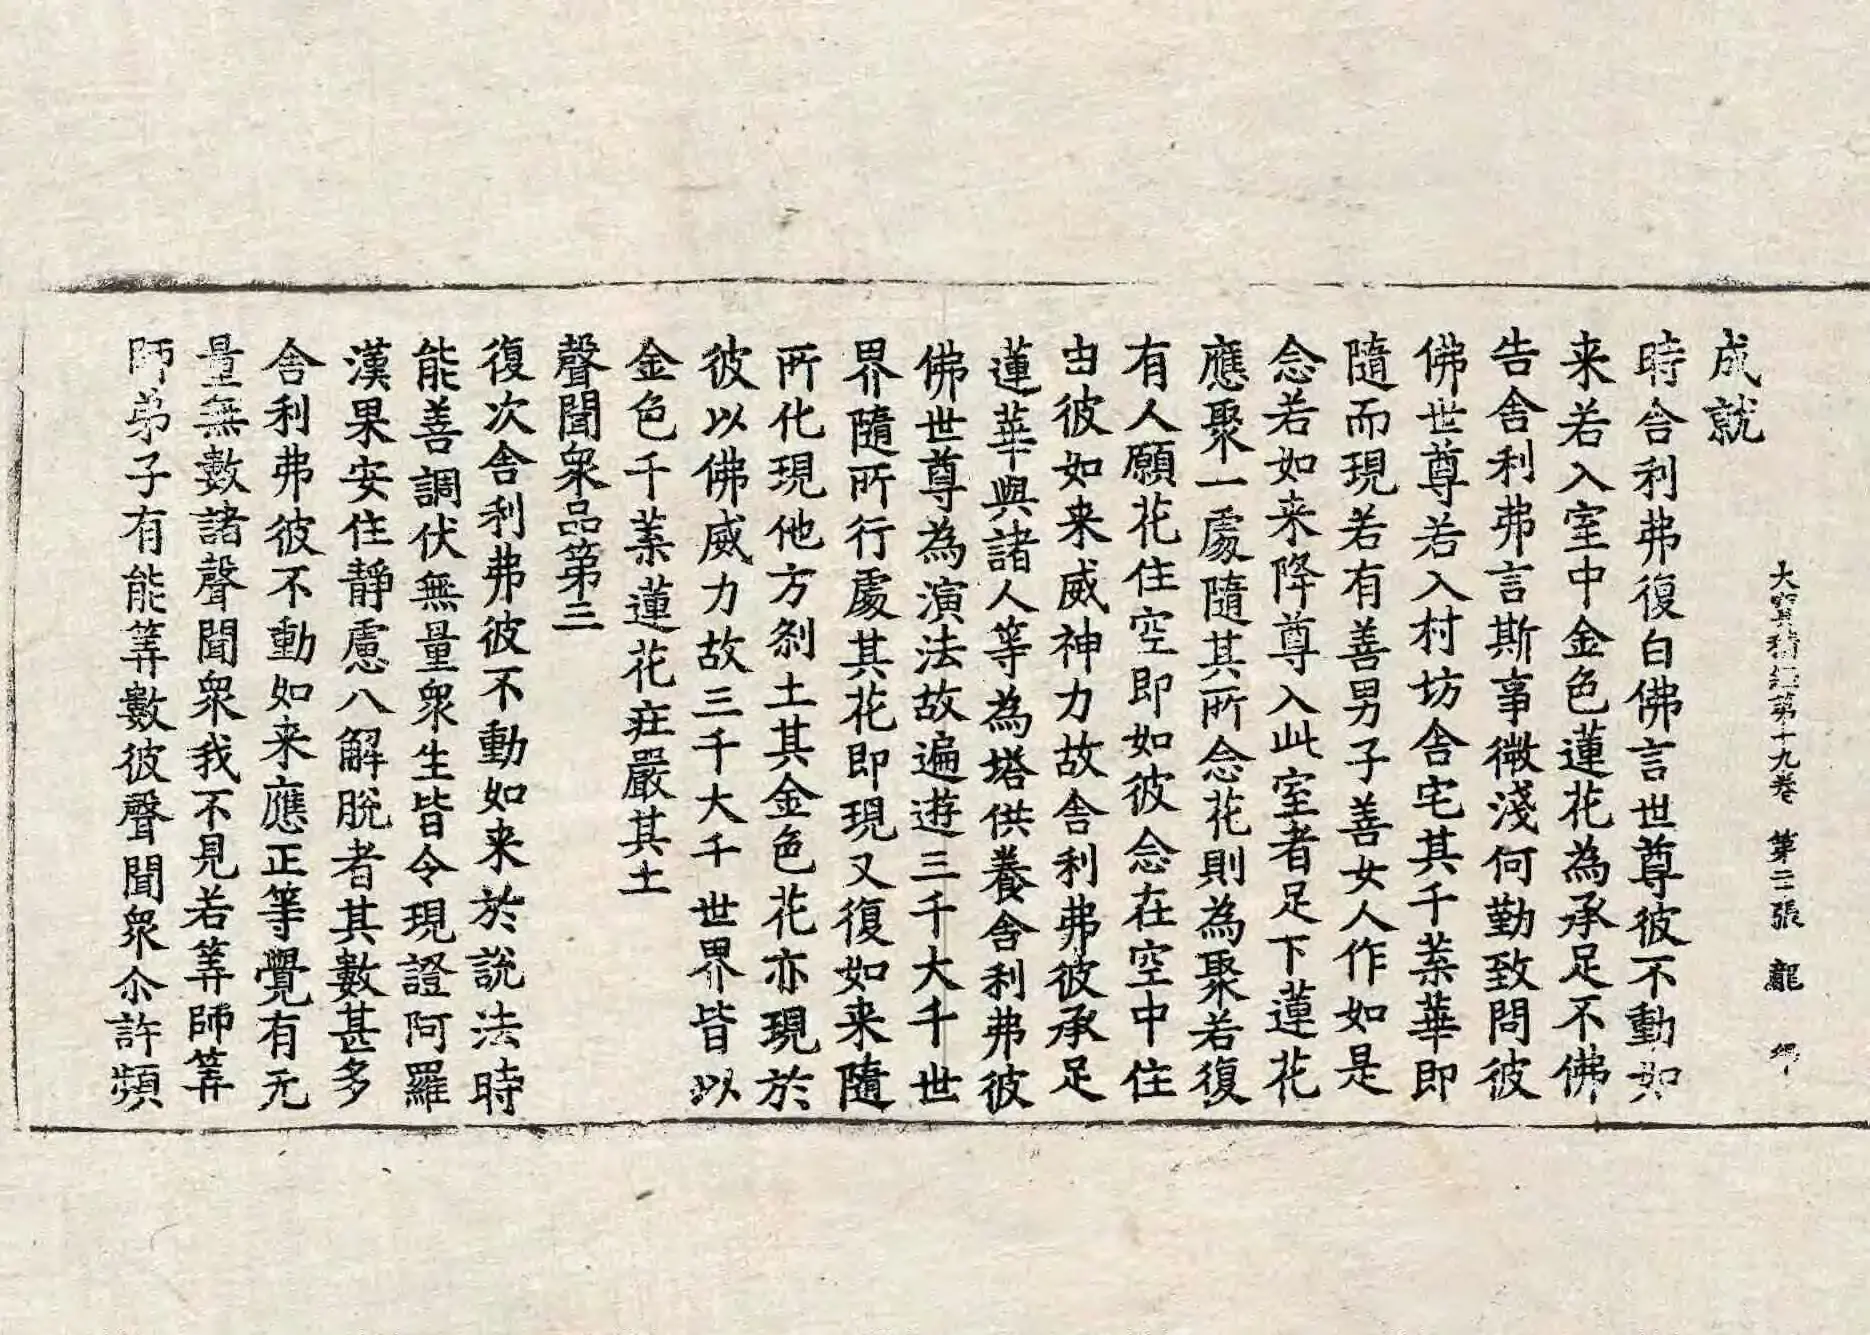 大寶積經第十九卷 第二張 龍
成就
時舍利弗復白佛言世尊彼不動如
来若入室中金色蓮花為承足不佛
告舍利弗言斯事微淺何勤致問彼
佛世尊若入村坊舍宅其千葉華即
隨而現若有善男子善女人作如是
念若如来降尊入此室者足下蓮花
應聚一處隨其所念花則為聚若復
有人願花住空即如彼念在空中住
由彼如来威神力故舍利弗彼承足
蓮華與諸人等為塔供養舍利弗彼
佛世尊為演法故遍遊三千大千世
界隨所行處其花即現又復如来隨
所化現他方剎土其金色花亦現於
彼以佛威力故三千大千世界皆以
金色千葉蓮花庄嚴其土
聲聞衆品第三
復次舍利弗彼不動如来於說法時
能善調伏無量衆生皆令現證阿羅
漢果安住靜慮八解脫者其數甚多
舍利弗彼不動如来應正等覺有无
量無數諸聲聞衆我不見若筭師筭
師弟子有能筭數彼聲聞衆尒許頻